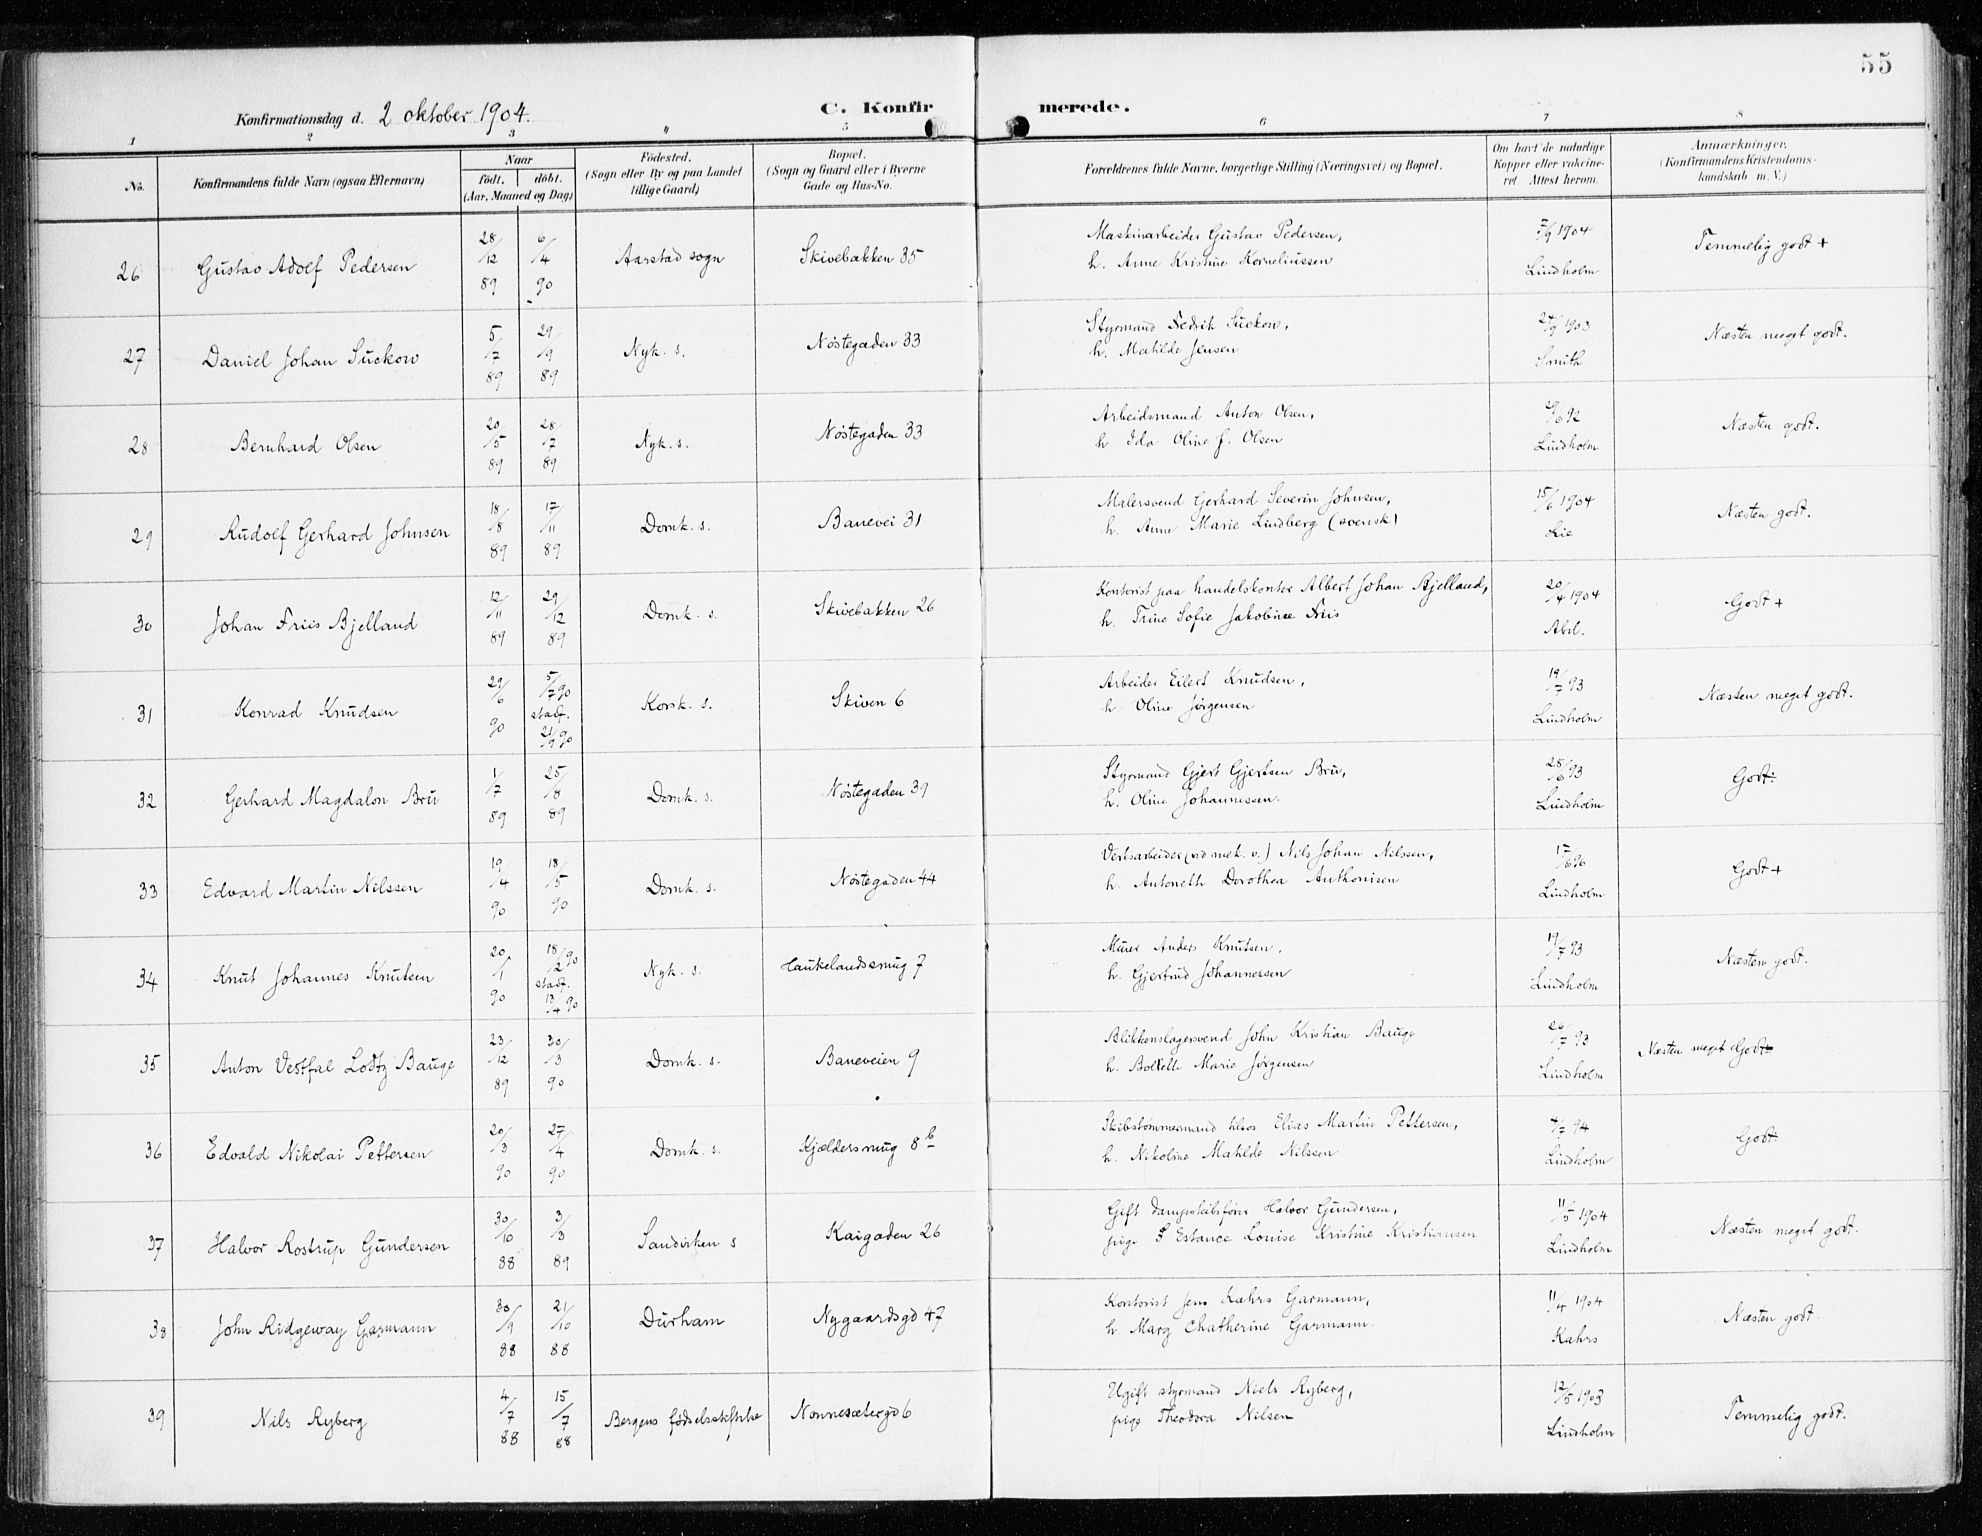 55
Konfirmationsdag d. 2 oktober 1904.
C. Konfirmerede.
1 2 3 4 5 6 7 8
No.
Konfirmandens fulde Navn (ogsaa Efternavn)
Naar
født, døbt.
(Aar, Maaned og Dag)
Fødested.
(Sogn eller By og paa Landet
tillige Gaard)
Bopæl.
(Sogn og Gaard eller i Byerne
Gade og Hus-No.
Forældrenes fulde Navne, borgerlige Stilling (Næringsvei) og Bopæl.
Om havt de naturlige
Kopper eller vakcine-
ret Attest herom.
Anmærkninger.
(Konfirmandens Kristendoms-
kundskab m. V.)
26 Gustav Adolf Pedersen 28/12 89 6/4 90 Aarstad sogn Skivebakken 35
Maskinarbeider Gustav Pedersen,
h. Anne Kristine Korneliussen
7/9 1904
Lindholm
Temmelig godt +
27 Daniel Johan Suckow 5/7 89 29/9 89 Nyk. s. Nøstegaden 33
Styrmand Fedrik Suckow,
h. Mathilde Jensen
24/9 1903
Smith
Næsten meget godt.
28 Bernhard Olsen 20/5 89 28/7 89 Nyk. s. Nøstegaden 33
Arbeidsmand Anton Olsen,
h. Ida Oline f. Olsen
29/6 92
Lindholm
Næsten godt.
29 Rudolf Gerhard Johnsen 18/8 89 17/11 89 Domk. s. Banevei 31
Malersvend Gerhard Severin Johnsen,
h. Anne Marie Lindberg (svensk)
15/6 1904
Lie
Næsten godt.
30 Johan Friis Bjelland 12/11 89 29/12 89 Domk. s. Skivebakken 26
Kontorist paa handelskontor Albert Johan Bjelland,
h. Trine Sofie Jakobine Friis
20/4 1904
Godt +
31 Konrad Knudsen 29/6 90 5/7 90 stadf. 21/9 90 Korsk. s. Skiven 6
Arbeider Eilert Knudsen,
h. Oline Jørgensen
19/7 93
Lindholm
Næsten meget godt.
32 Gerhard Magdalon Bru 1/7 89 25/8 89 Domk. s. Nøstegaden 39
Styrmand Gjert Gjertsen Bru,
h. Oline Johannessen.
28/6 93
Lindholm
Godt
33 Edvard Martin Nilssen 19/4 90 18/5 90 Domk. s. Nøstegaden 44
Verksarbeider (ved mek. v.) Nils Johan Nilssen,
h. Antoneth Dorothea Anthonisen
17/6 96
Lindholm
Godt +
34 Knut Johannes Knutsen 20/1 90 18/2 90 stadf. 13/4 90 Nyk. s. Haukelandssmug 7
Murer Anders Knutsen,
h. Gjertrud Johannessen
19/7 93
Lindholm
Næsten godt.
35 Anton Vestfal Lodtz Bauge 23/12 89 30/3 90 Domk. s. Baneveien 9
Blikkenslagersvend John Kristian Bauge
h. Bolette Marie Jørgensen
20/7 93
Lindholm
Næsten meget Godt
36 Edvald Nikolai Pettersen 20/3 90 27/4 90 Domk. s. Kjældersmug 8 b
Skibstømmermand tilsøs Elias Martin Pettersen,
h. Nikoline Mathilde Nilssen
4/7 94
Lindholm
Godt
37 Halvor Rostrup Gundersen 30/10 88 3/3 89 Sandviken s Kaigaden 26
Gift dampskibsfører Halvor Gundersen,
pige Estance Louise Kristine Kristiansen
11/5 1904
Lindholm
Næsten meget godt.
38 John Ridgeway Garmann 30/9 88 21/10 88 Durham Nygaardsgd 47
Kontorist Jens Kahrs Garmann,
h Marg Chatherine Garmann.
11/4 1904
Kahrs
Næsten godt
39 Nils Ryberg 4/7 88 15/7 88 Bergens fødselsstiftelse Nonnesætergd 6
Ugift styrmand Niels Ryberg,
pige Theodora Nilsen
12/5 1903
Lindholm
Temmelig godt.